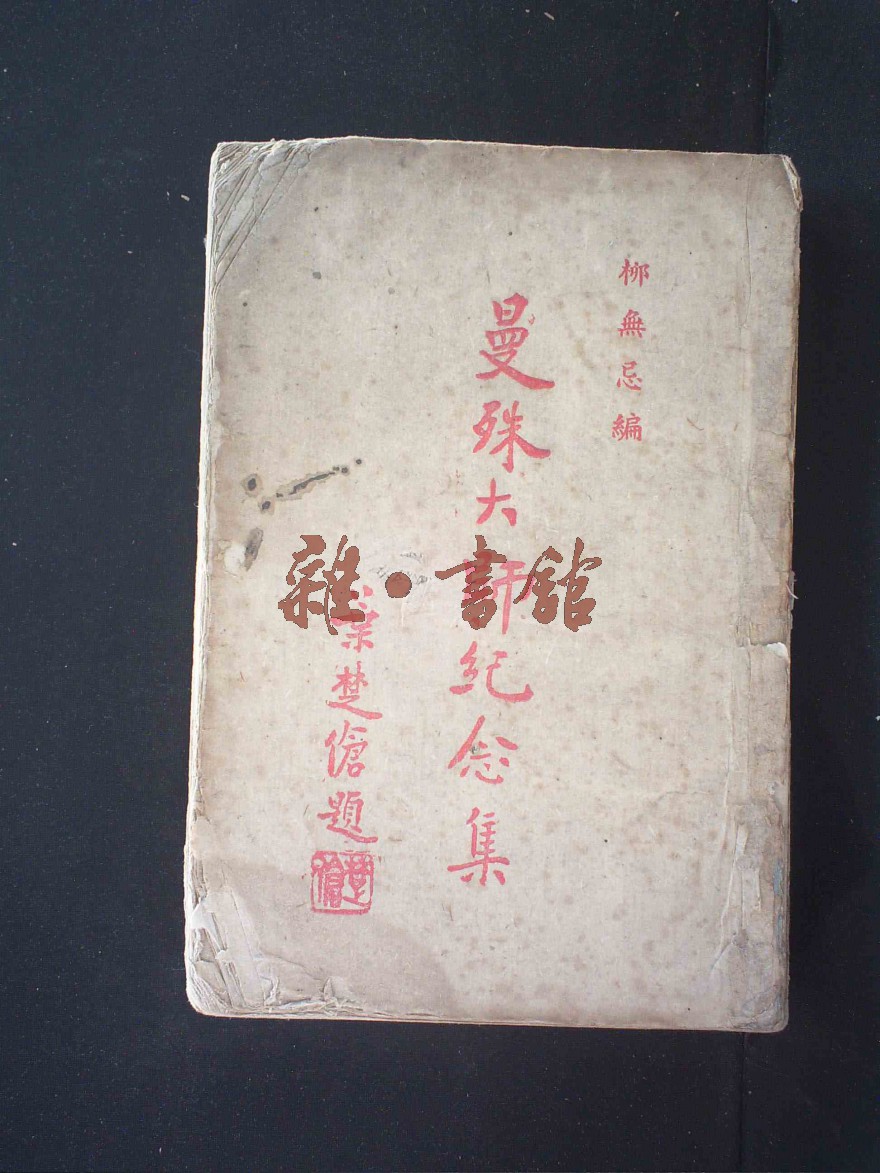 柳無忌編
曼殊大師紀念集
葉楚傖題
楚傖
雜·書館